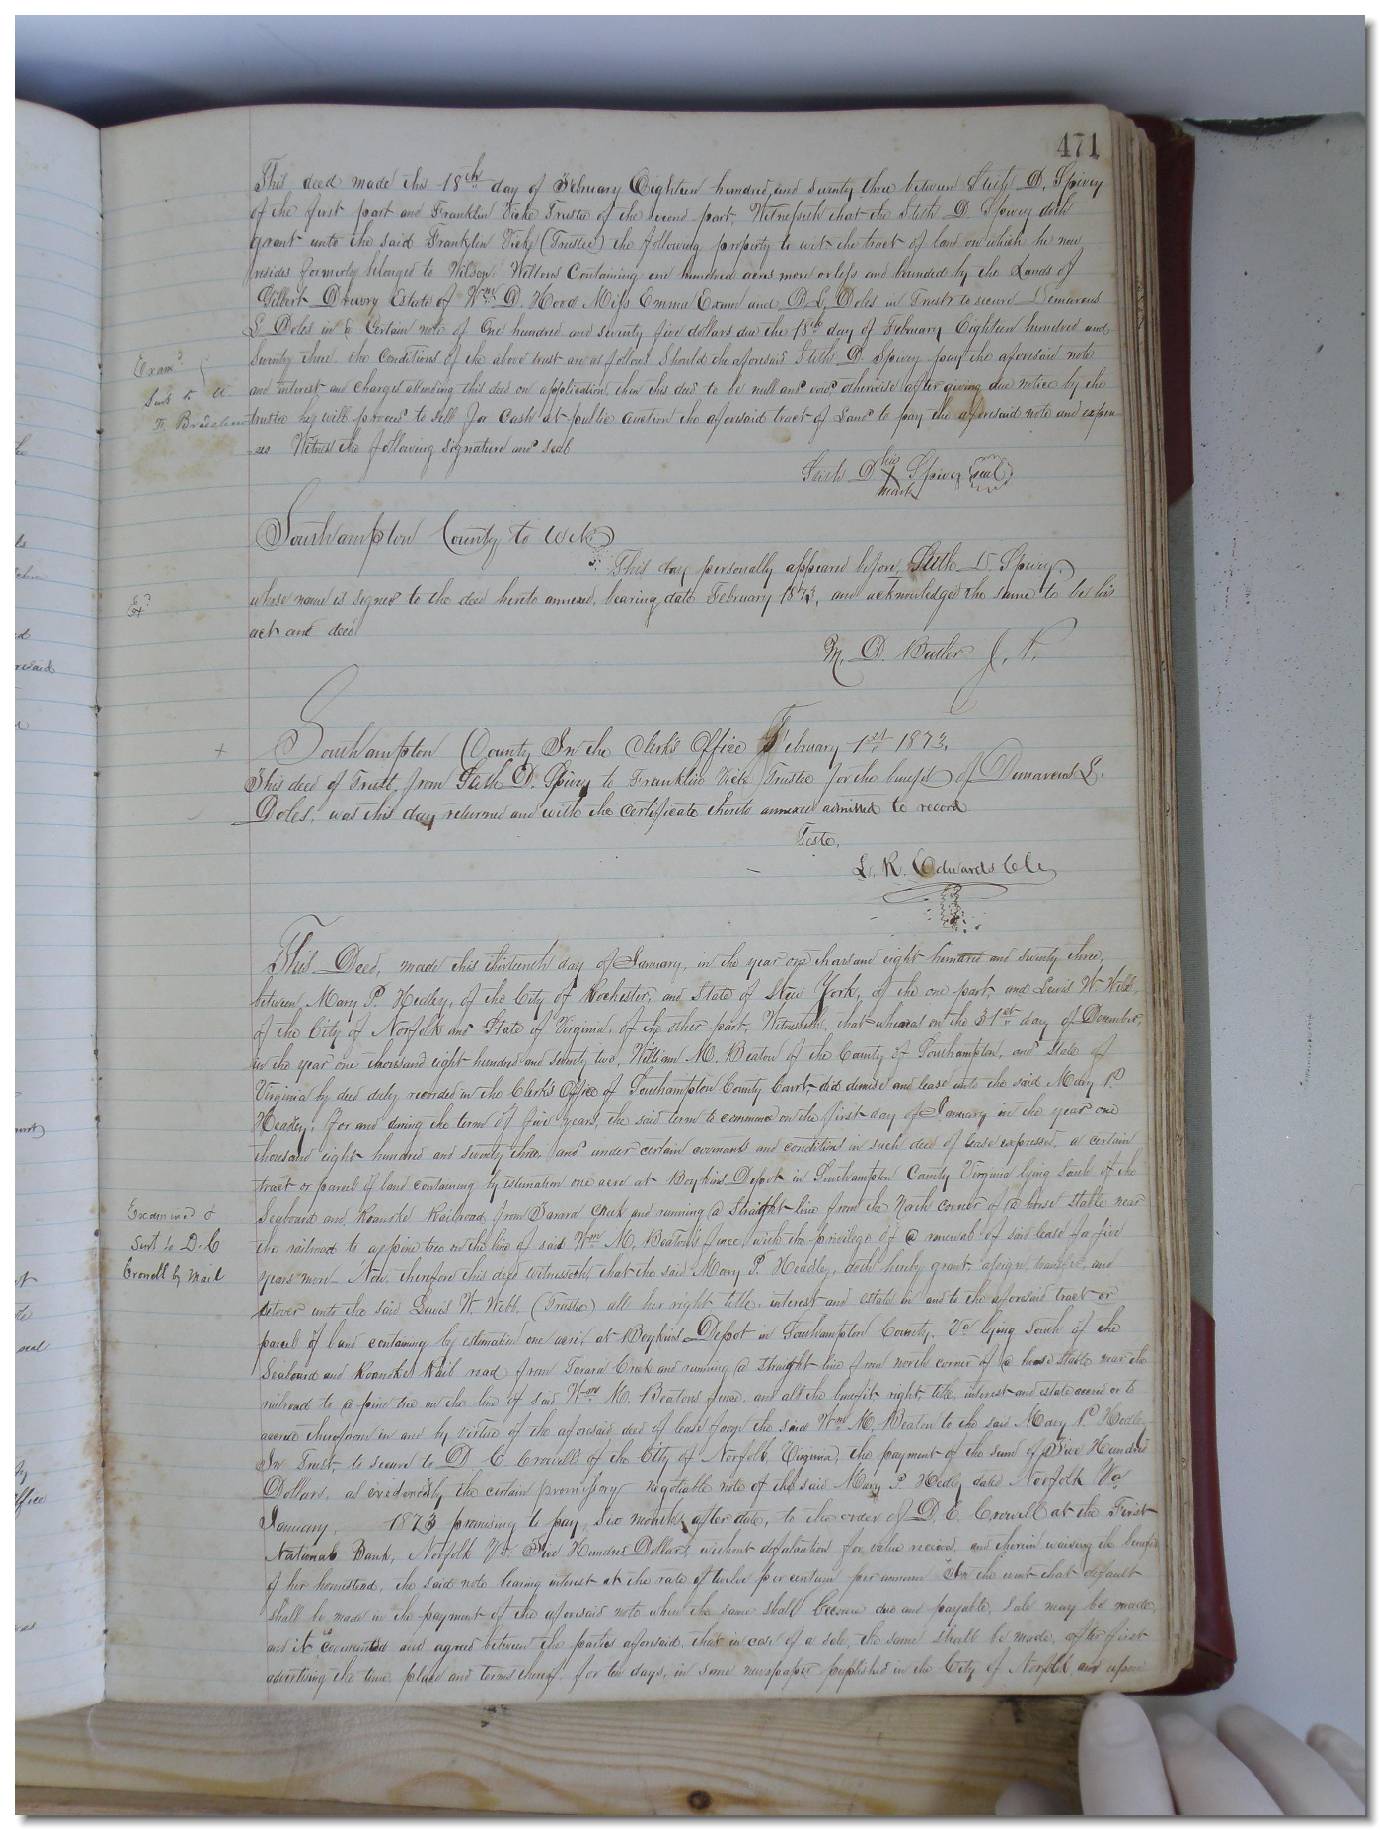 471
This deed made this 18th day of February Eighteen hundred and seventy three between Steth D. Spivey
of the first part and Franklin Vick Trustee of the second part. Witnesseth that the Steth D Spivey doth
grant unto the said Franklin Vick (Trustee) the following property to wit the tract of land on which he now
resides formerly belonged to Wilson Wittons Containing one hundred acres more or less and bounded by the Lands of
Gilbert Drewry Estate of Wm D. Hood Miss Emma Exum and D. L. Doles in Trust to secure Demarcus
L Doles in a Certain note of One hundred and seventy five dollars due the 18th day of February Eighteen hundred and
Seventy three the Conditions of the above trust are as follows Should the aforesaid Steth D. Spivey pay the aforesaid note
and interest and charges attending this deed on application, then this deed to be null and void, otherwise after giving due notice by the
trustee he will proceed to sell for Cash at public auction the aforesaid tract of Land to pay the aforesaid note and expen
-ses Witness the following signature and seal
Steth D his X mark Spivey seal
Examd
Sent to
Southampton County to wit
This day personally appeared before, Steth D. Spivey
whose name is signed to the deed hereto annexed, bearing date February 1873, and acknowledge the same to be his
act and deed
Exd
M. D. Butler J. P.
Southampton County In the Clerk's Office February 1st 1873.
This deed of Trust, from Steth D. Spivey to Franklin Vick Trustee for the benefit of Demarcus L.
Doles, was this day returned and with the certificate thereto annexed admitted to record
Teste,
L. R. Edwards Clk
This Deed, made this thirteenth day of January, in the year one thousand eight hundred and seventy three,
between Mary P. Hedley, of the City of Rochester, and State of New York, of the one part, and Lewis W Webb,
of the City of Norfolk and State of Virginia, of the other part, Witnesseth, that whereas on the 31st day of December,
in the year one thousand eight hundred and seventy two, William M. Beaton of the County of Southampton, and State of
Virginia by deed duly recorded in the Clerk's Office of Southampton County Court, did demise and lease unto the said Mary P.
Headley, for and during the term of five years, the said term to commence on the first day of January in the year one
thousand eight hundred and seventy three, and under certain covenants and conditions in such deed of lease expressed, a certain
tract or parcel of land containing by estimation one acre at Boykins Depot in Southampton County Virginia lying South of the
Seaboard and Roanoke Railroad, from Tarara Creek and running a straight line from the North corner of a horse stable near
the railroad to a pine tree on the line of said Wm M. Beaton's fence with the privilege of a renewal of said lease for five
years more. Now, therefore this deed witnesseth, that the said Mary P. Headley, doth hereby grant, assign, transfer, and
setover unto the said Lewis W. Webb, (Trustee) all her right title, interest and estate in and to the aforesaid tract or
parcel of land containing by estimation one acre, at Boykins Depot in Southampton County, Va lying South of the
Seaboard and Roanoke Rail road from Tarara Creek and running a straight line from north corner of a horse stable near the
railroad to a pine tree on the line of said Wm M. Beatons fence, and all the benefit right, title, interest and estate accrued or to
accrue therefrom in and by virtue of the aforesaid deed of lease from the said Wm M. Beaton to the said Mary P. Hedley.
In Trust, to secure to D C Crowell of the City of Norfolk, Virginia, the payment of the sum of Five Hundred
Dollars, as evidenced by the certain promissory negotiable note of the said Mary P Hedley dated Norfolk Va
January, 1873 promising to pay, six months after date, to the order of D. C. Crowell at the First
National Bank, Norfolk Va. Five Hundred Dollars, without defalcation for value received, and therein waiving the benefit
of her homestead, the said note bearing interest at the rate of twelve per centum per annum In the event that default
shall be made in the payment of the aforesaid note when the same shall become due and payable, sale may be made,
and it covenanted and agreed between the parties aforesaid, that in case of a sale, the same shall be made, after first
advertising the time, place and terms thereof, for ten days, in some newspaper published in the City of Norfolk, and upon
Examined &
Sent to D. C
Crowell by mail